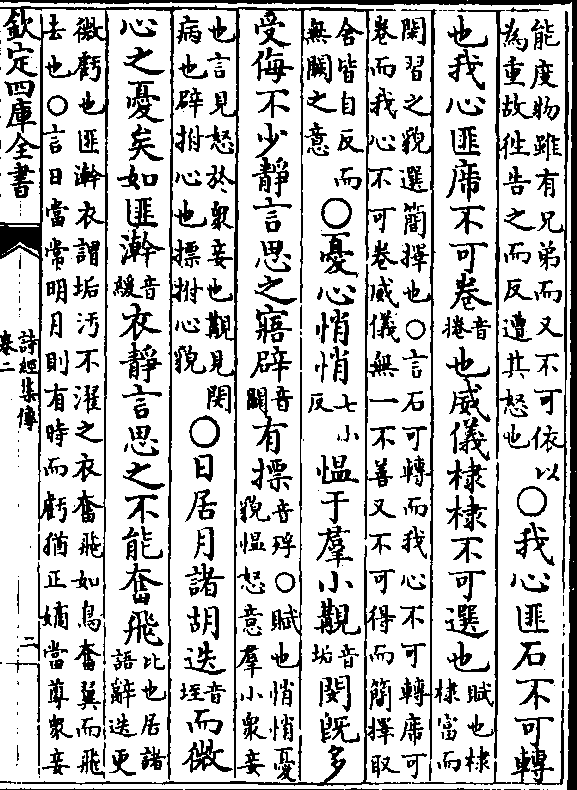 能度物雖有兄弟而又不可依以
為重故徃告之而反遭其怒也
○我心匪石不可轉
也我心匪席不可卷音捲也威儀棣棣不可選也
賦也棣
棣富而
閑習之貌選簡擇也○言石可轉而我心不可轉席可
卷而我心不可卷威儀無一不善又不可得而簡擇取
舍皆自反而
無闕之意
○憂心悄悄七小反愠于羣小覯音垢閔既多
受侮不少靜言思之寤辟音闢有摽
音殍○賦也悄悄憂
貌愠怒意羣小衆妾
也言見怒於衆妾也覯見閔
病也辟拊心也摽拊心貌
○日居月諸胡迭音垤而微
心之憂矣如匪澣音緩衣靜言思之不能奮飛
比也居諸
語辭迭更
微虧也匪澣衣謂垢汚不濯之衣奮飛如鳥奮翼而飛
去也○言日當常明月則有時而虧猶正嫡當尊衆妾
欽定四庫全書
詩經集傳
卷二
二